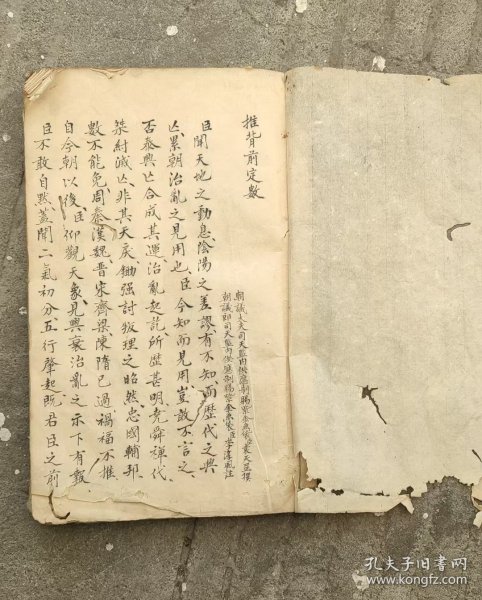 推背前定數
朝議大夫司天監內供奉制賜紫金魚袋臣袁天罡撰
朝議郎司天監內供奉制賜紫金魚袋臣李淳風註
臣聞天地之動息陰陽之差謬有不知而歷代之興
亾累朝治亂之見用也臣今知而見用豈敢不言之
否泰興亾合成其運治亂起於所歷甚明堯舜禪代
桀紂滅亾非其天戾鋤強討叛理之昭然忠國輔邦
數不能免周秦漢魏晉宋齊梁陳隋已過禍福不推
自今朝以後臣仰觀天象見興衰治亂之示下有報
臣不敢自黙蓋聞二氣初分五行肇起旣君臣之前
孔夫子旧书网
www.kongfz.com